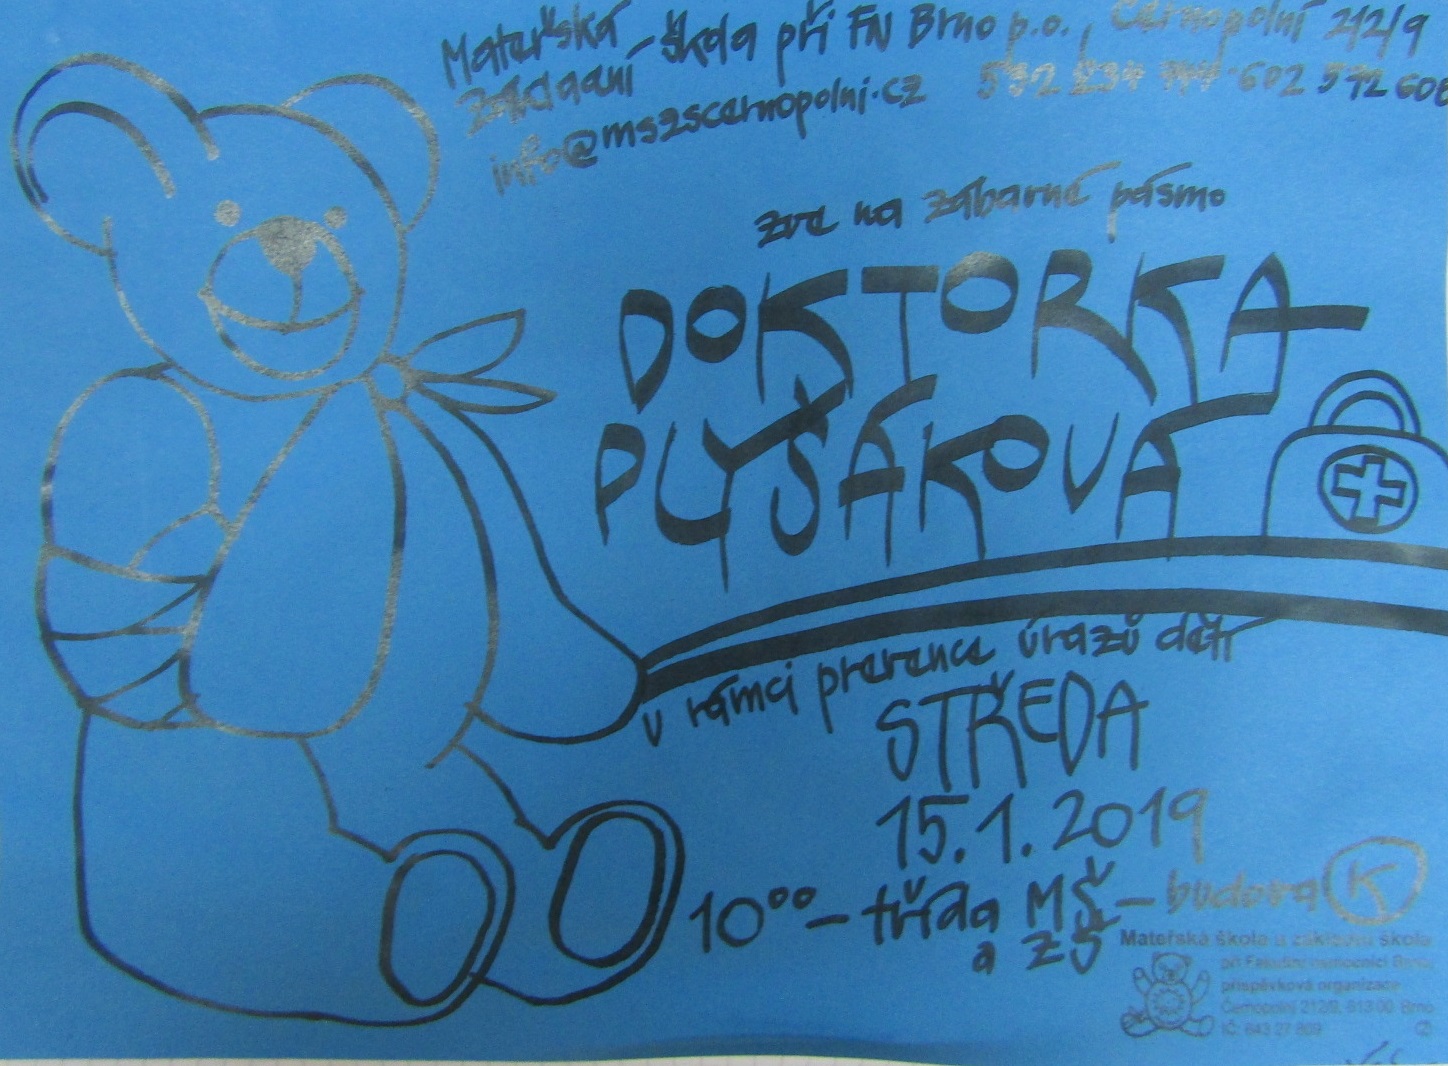 Mateřská škola při FN Brno p.o., Černopolní 212/9
Základní
info@mszscernopolni.cz 532 234 602 572 608
zve na zábavné pásmo
DOKTORKA
PLYŠÁKOVÁ
v rámci prevence úrazů dětí
STŘEDA
15.1.2019
10°° – třída MŠ – budova K
a ZŠ
Mateřská škola a základní škola
při Fakultní nemocnici Brno,
příspěvková organizace
Černopolní 212/9, 613 00 Brno
IČ: 643 27 809